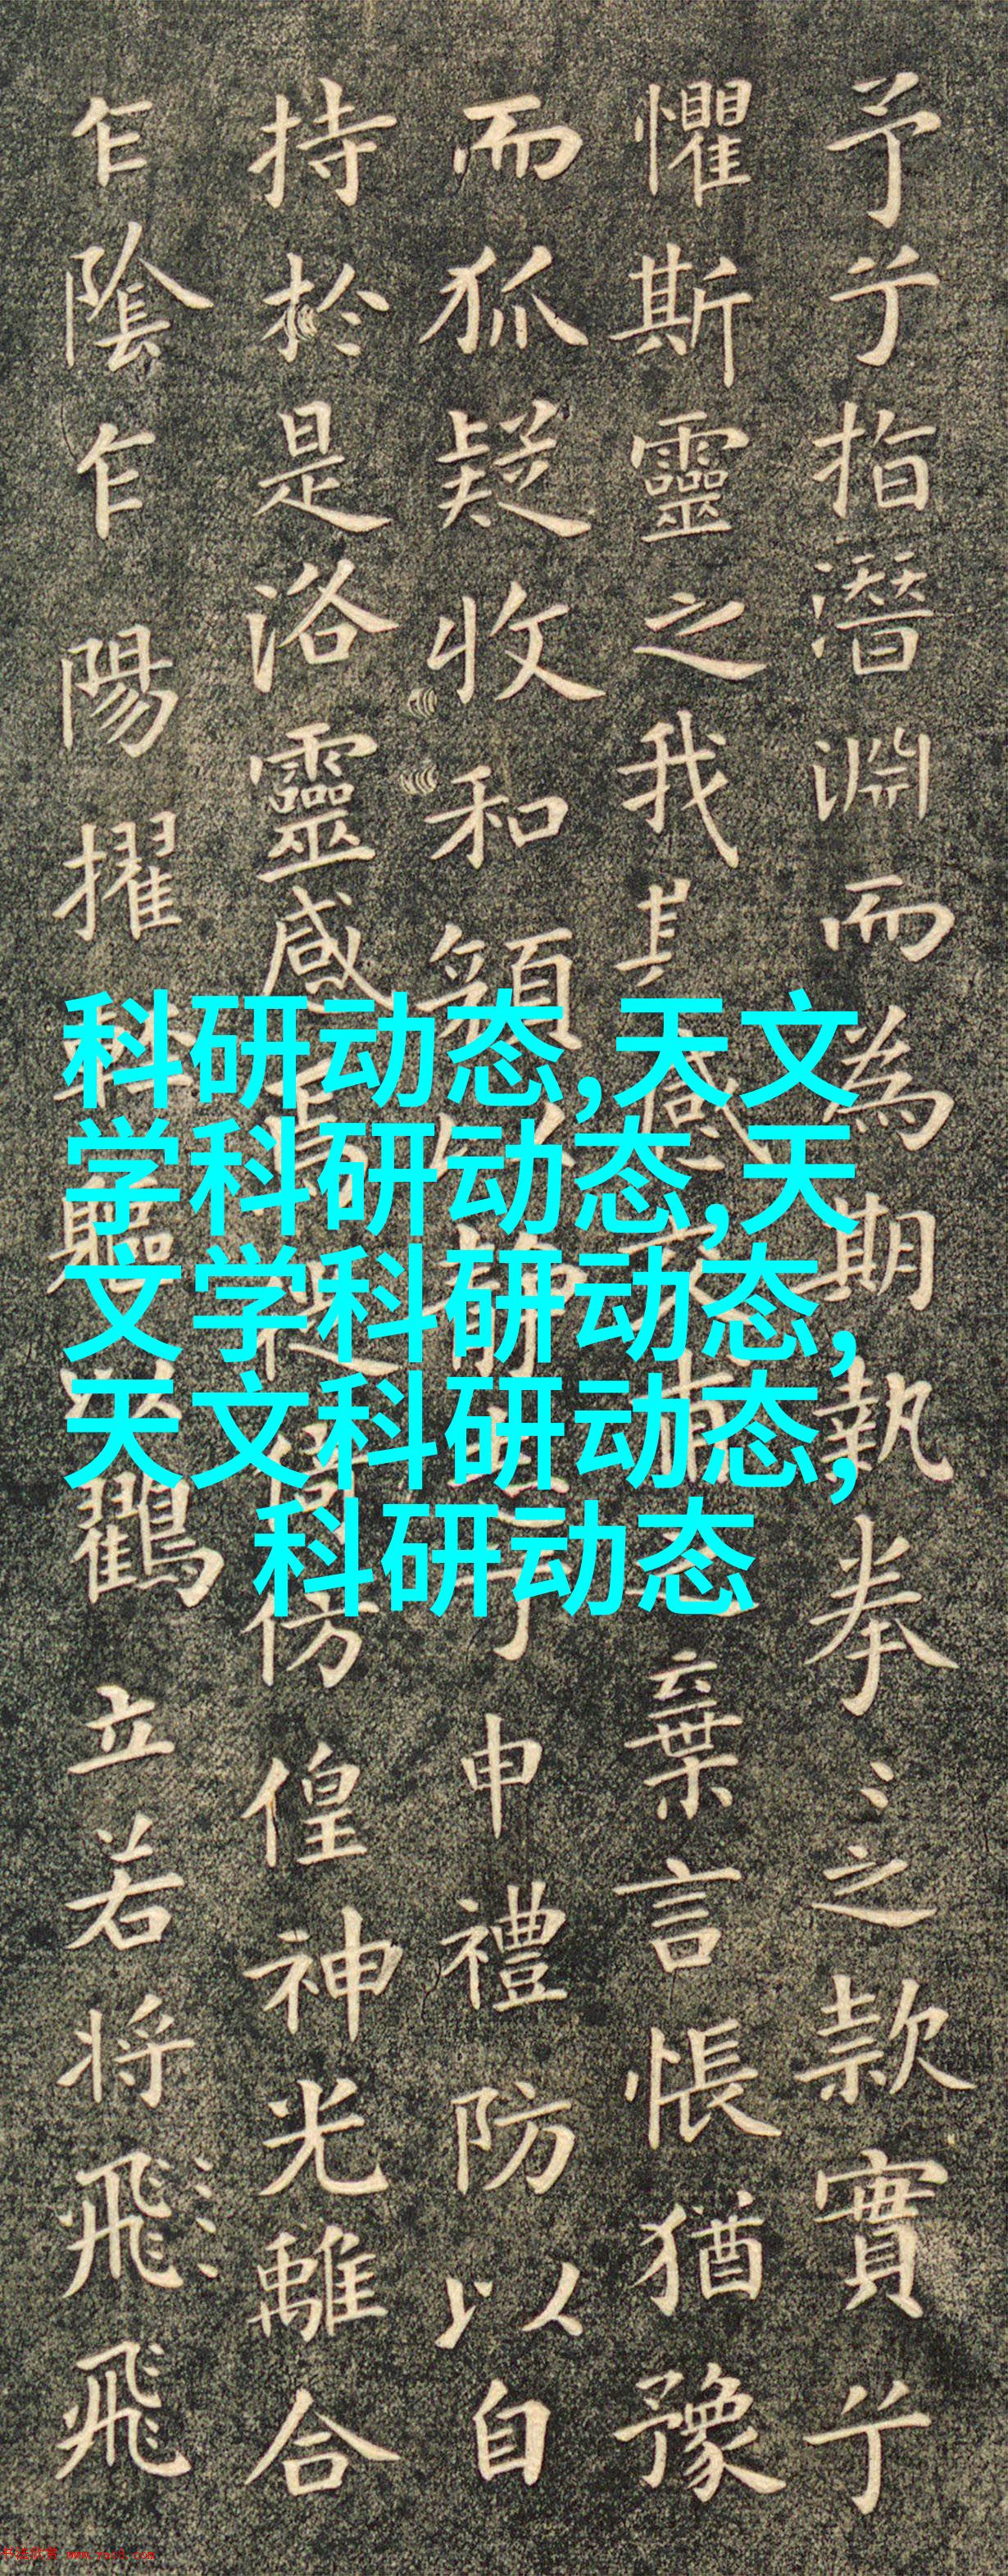 予兮指潛淵而為期執拳〻之款實兮
懼斯靈之我感棄言悵猶豫
而狐疑收和顏靜申禮防以自
持於是洛靈感焉傍偟神光離合
乍陰乍陽擢軀鶴立若将飛飛
科研动态,天文
学科研动态,天
文学科研动态,
天文科研动态,
科研动态